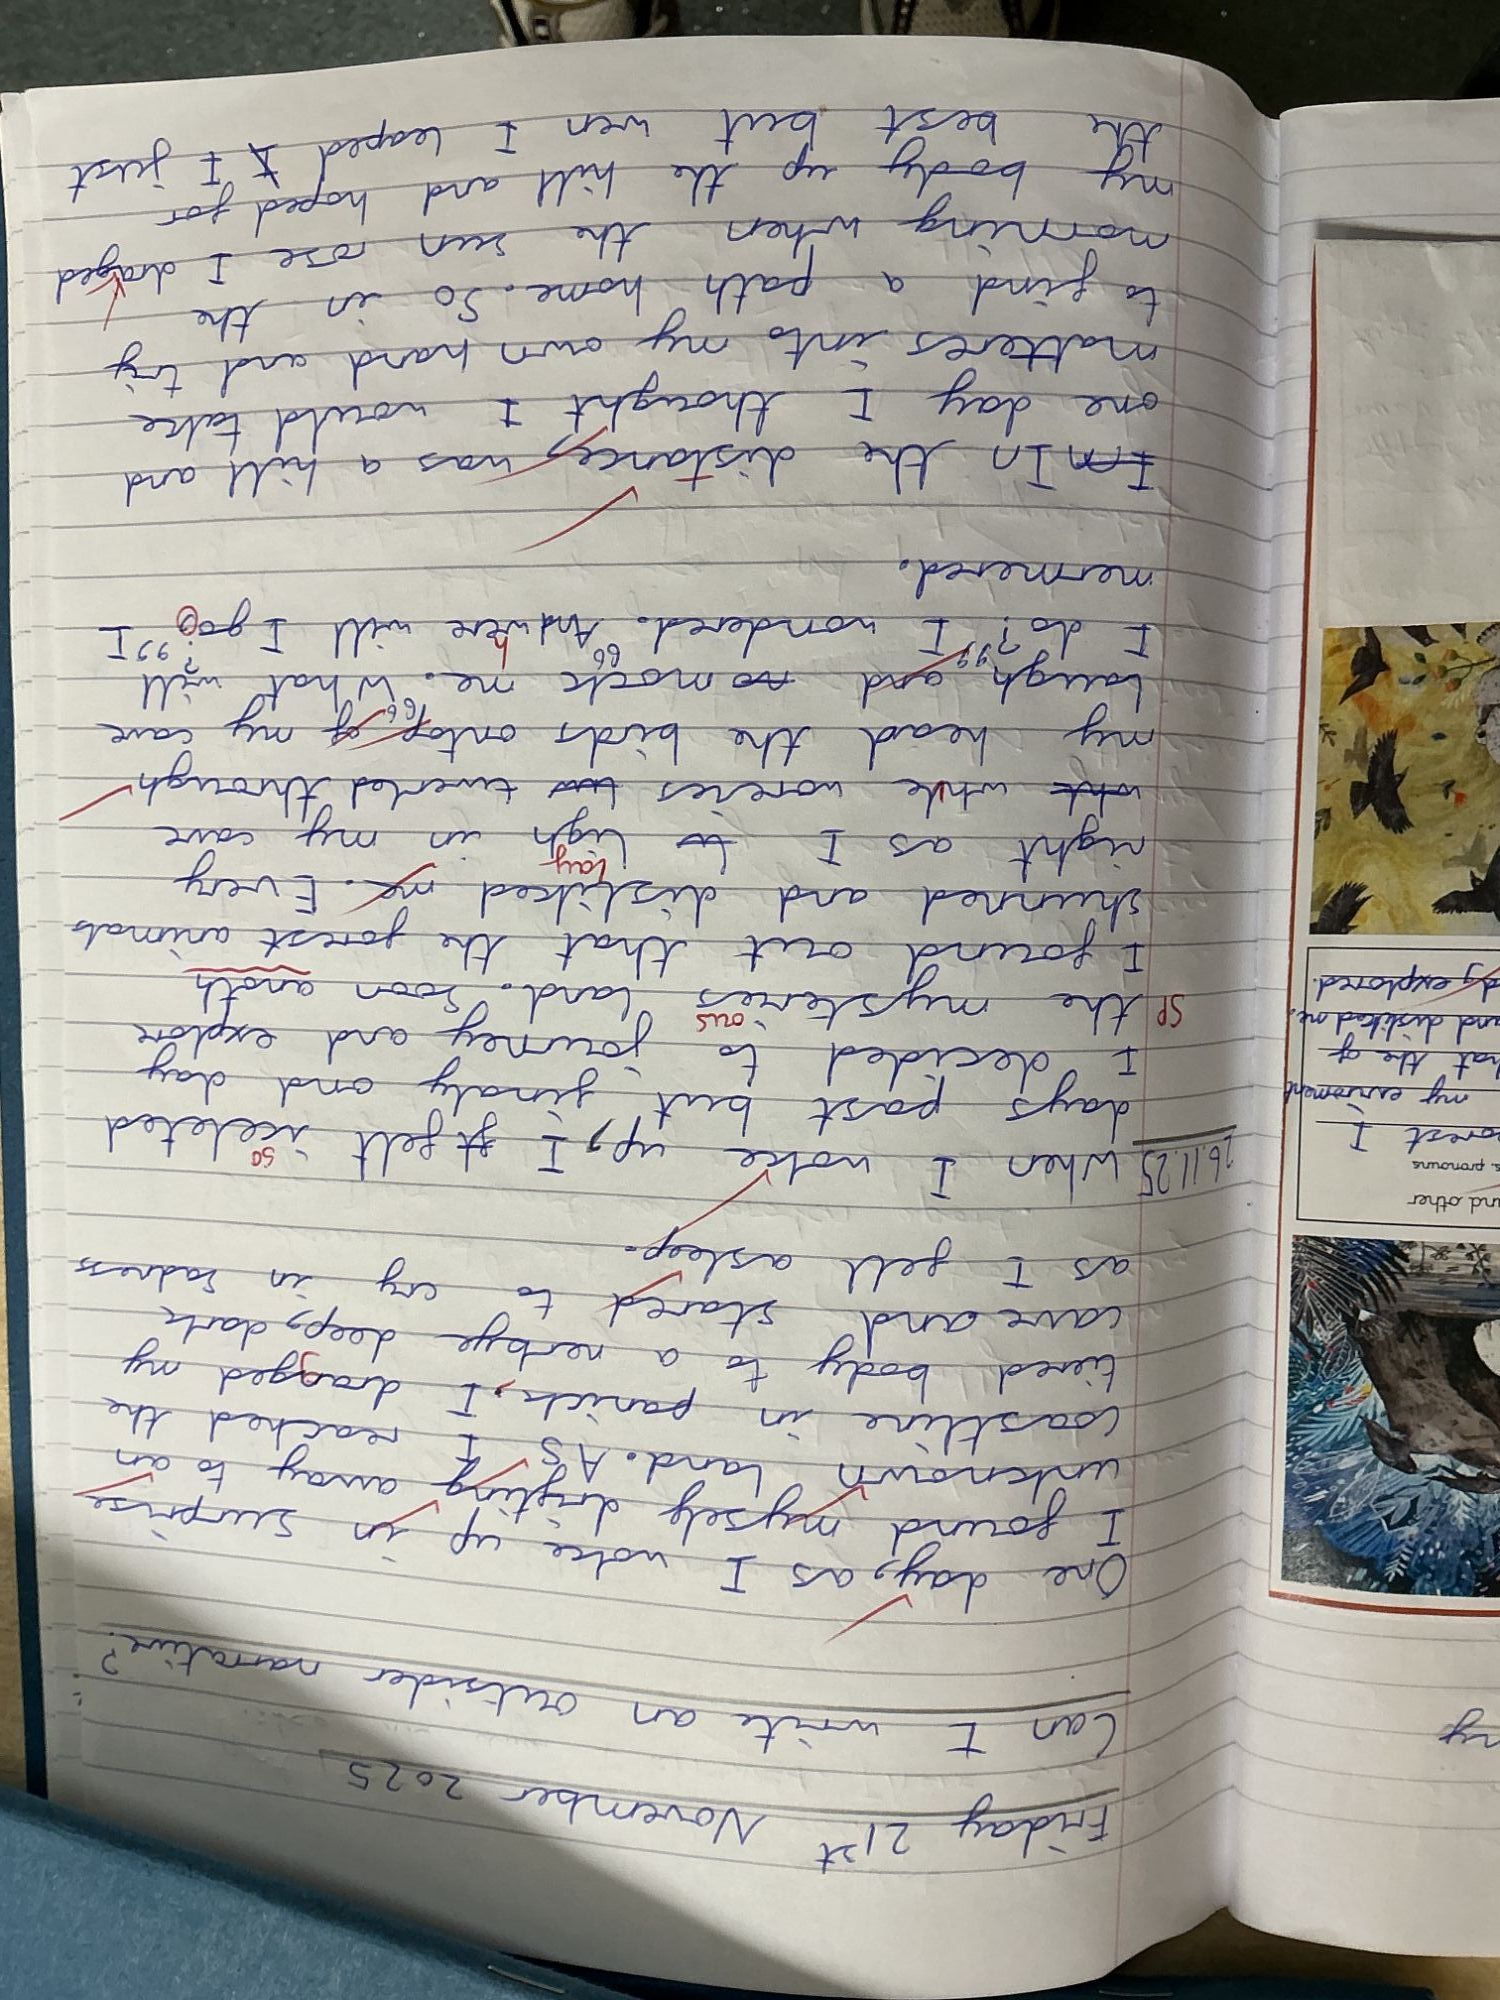 Friday 21st November 2025
Can I write an outsider narrative?
One day, as I woke up in surprise
I found myself drifting away to an
unknown land. As I reached the
coastline in panick, I dragged my
tiered body to a nerbye deep, dark
cave and stared to cry in sadness
as I fell asleep.
26.11.25 When I woke up, I felt so iceleted
days past but finaly one day
I decided to journey and explore
sp the mysteries ous land. Soon anoth
I found out that the forest animals
shunned and disliked me. Every
lay
night as I ligh in my cave
while voreries twerled through
my head the birds ontop of my cave
laugh and mock me. "What will
I do?" I wondered. "And where will I go?" I
mermered.
In the distance, was a hill and
one day I thought I would take
matteres into my own hand and try
to find a path home. So in the
morning when the sun rose I draged
my body up the hill and hoped for
the best but wen I leaped I just
and other
s. pronouns
orest I
my enviroment
hat the of
and disliked me.
dy explored.